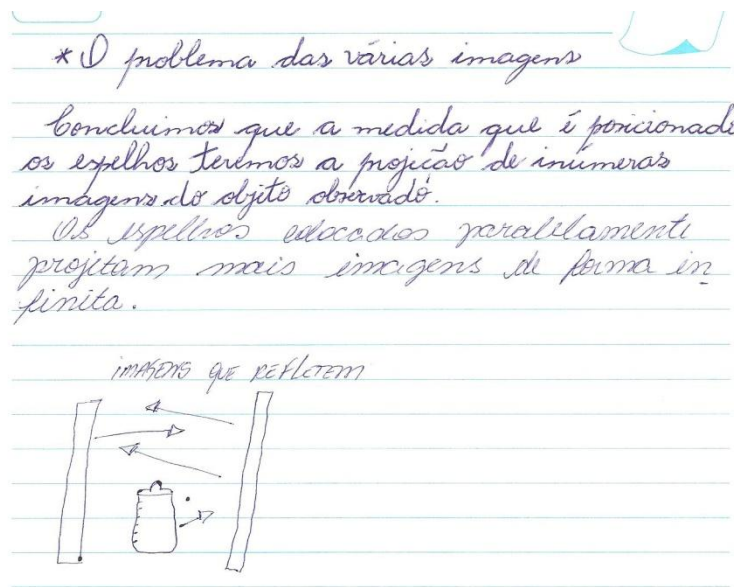 * O problema das várias imagens
Concluimos que a medida que é posicionado
os espelhos teremos a projição de inúmeras
imagens do objito observado.
Os espelhos colocados paralelamente
projetam mais imagens de forma in
finita.
IMAGENS QUE REFLETEM